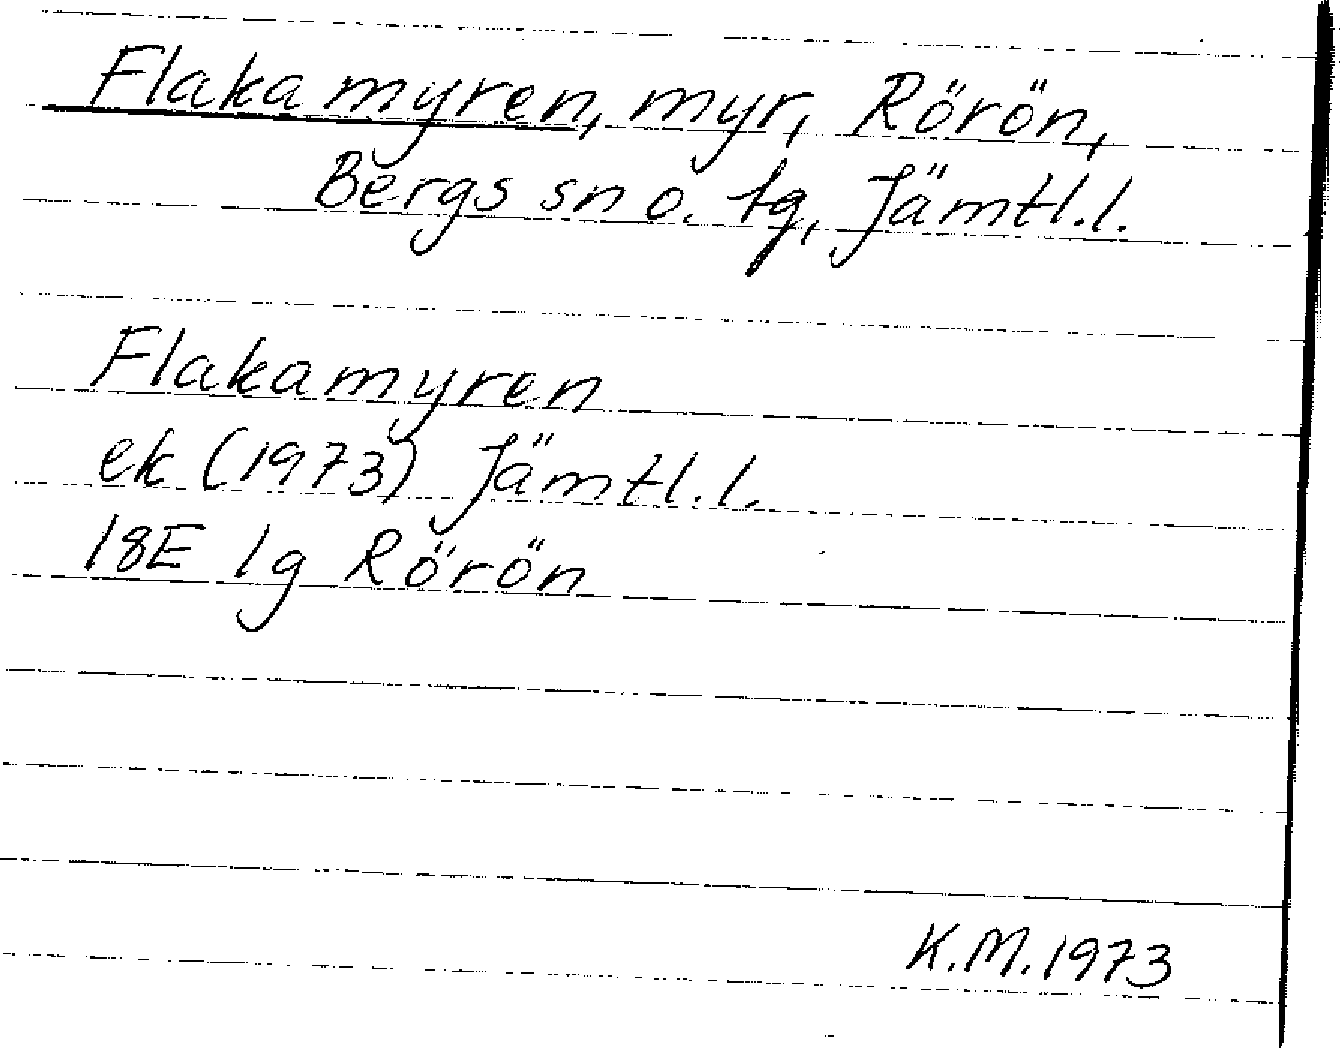 Flakamyren, myr, Rörön,
Bergs sn o. tg, Jämtl.l.
Flakamyren
ek (1973) Jämtl.l.
18E 1g Rörön
K.M. 1973